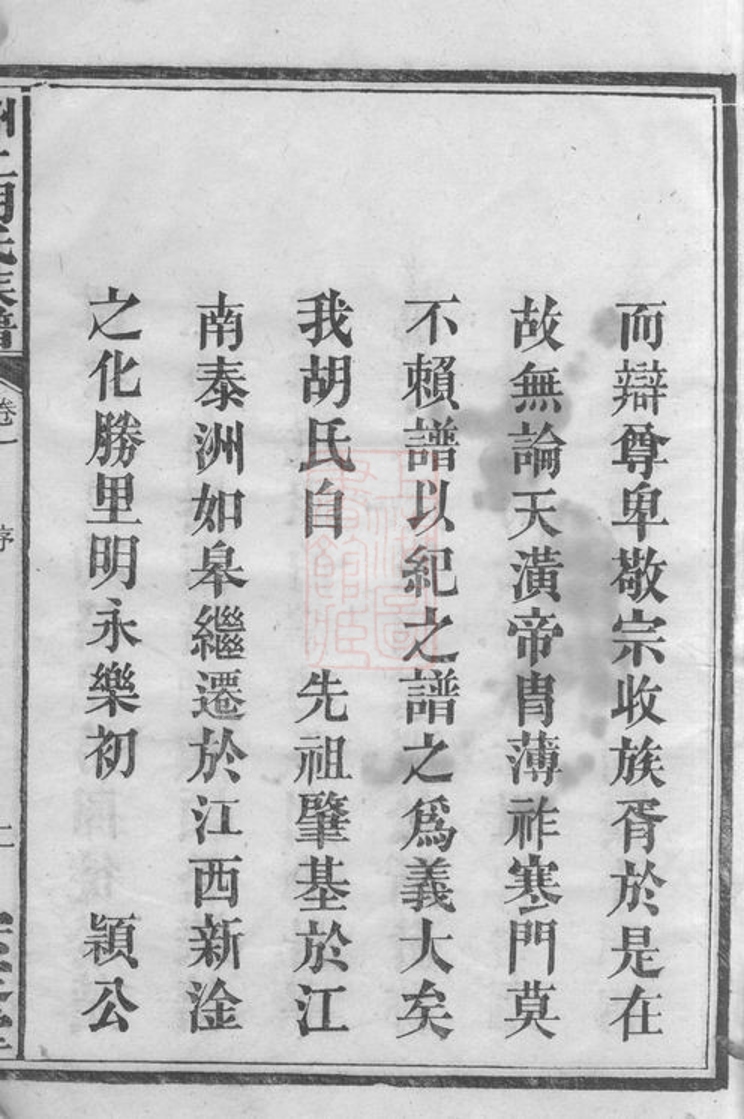 而辯尊卑敬宗收族胥於是在
故無論天潢帝胄薄祚寒門莫
不賴譜以紀之譜之爲義大矣
我胡氏自　先祖肇基於江
南泰洲如皋繼遷於江西新淦
之化勝里明永樂初　穎公
胡氏族譜
卷一
序
二